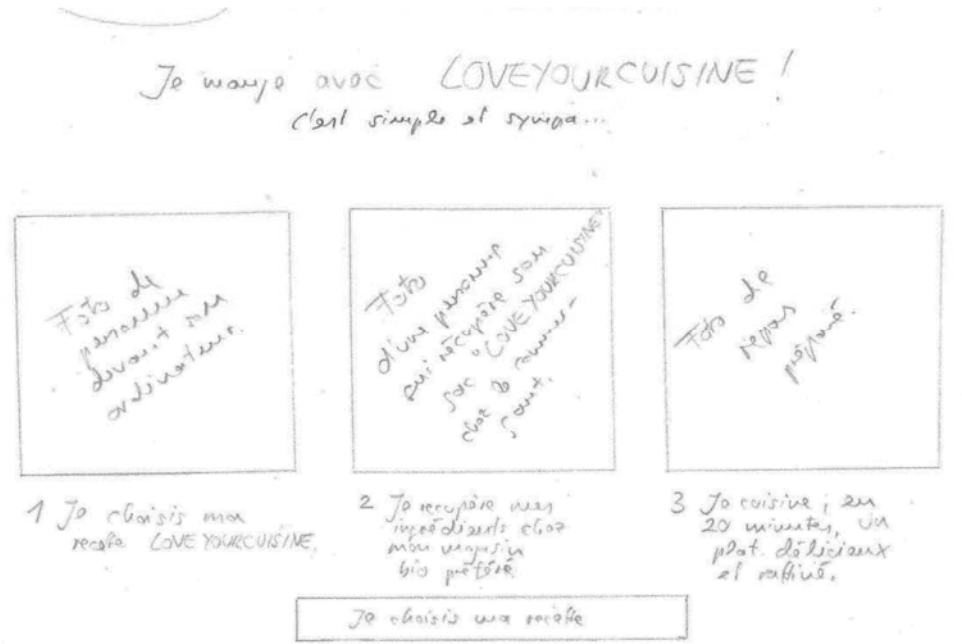 Je mange avec LOVEYOURCUISINE !
c'est simple et sympa...
Foto de
personne
devant son
ordinateur.
Foto
d'une personne
qui récupère son
sac "LOVEYOURCUISINE"
chez
Foto de
repas
préparé.
1 Je choisis ma
recette LOVEYOURCUISINE.
2 Je récupère mes
ingrédients chez
mon magasin
bio préféré
3 Je cuisine ; en
20 minutes, un
plat délicieux
et raffiné.
Je choisis ma recette